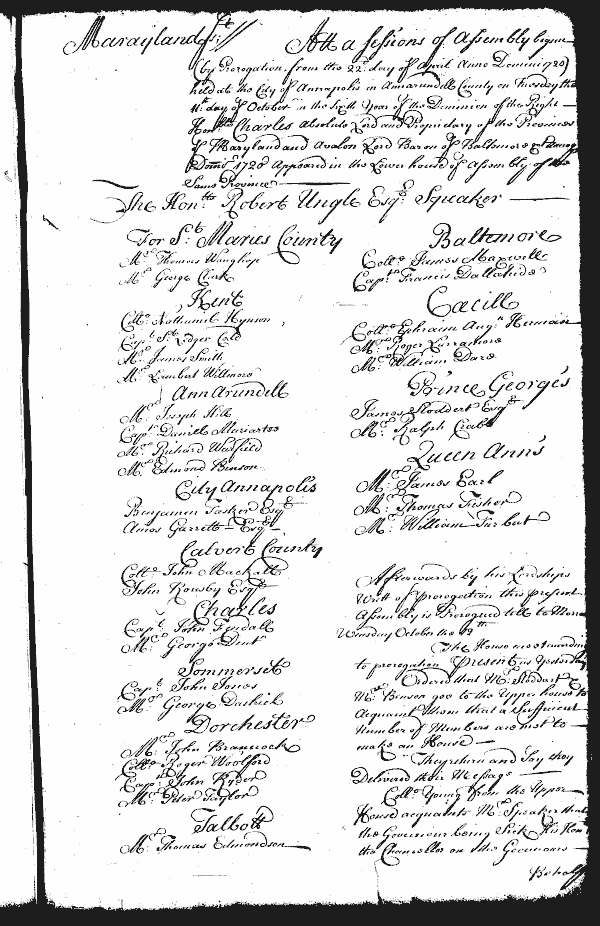 Marayland ss:
Att a Sessions of Assembly begun
(by Prorogation from the 22d day of April Anno Domini 1720)
held at the City of Annapolis in Annarundell County on Tuesday the
11th day of October in the Sixth Year of the Dominion of the Right
Honble Charles Absolute Lord and Proprietary of the Provinces
of Maryland and Avalon Lord Baron of Baltimore
Domi 1720 Appeared in the Lower house of Assembly of the
Same Province
The Honble Robert Ungle Esqr Speaker
For St Maries County
Mr Thomas
Mr George Clark
Kent
Collo Nathaniel Hynson
Capt St Ledger Codd
Mr James Smith
Mr Lambert Willmore
Ann Arundell
Mr Joseph Hill
Capt Daniell Mariartee
Mr Richard Warfield
Mr Edmond Benson
City Annapolis
Benjamin Tasker Esqr
Amos Garrett Esqr
Calvert County
Collo John Mackall
John Rousby Esqr
Charles
Capt John Fendall
Mr George Dent
Sommerset
Capt John Jones
Mr George Dashiek
Dorchester
Mr John Brannock
Collo Roger Woolford
Capt John Ryder
Mr Peter Taylor
Talbott
Mr Thomas Edmondson
Baltemore
Collo James Maxwell
Capt Francis Dallahide
Caecill
Collo Ephraim Augn Herman
Mr Roger
Mr William Dare
Prince George's
James Stoddert Esqr
Mr Ralph Crabb
Queen Ann's
Mr James Earl
Mr Thomas Fisher
Mr William Turbut
Afterwards by his Lordships
Writ of prorogation this present
Assembly is Prorogued till to Morrow
Wensday October the 12th
The House meet according
to prorogation Present as Yesterday
Ordered that Mr Stoddart &
Mr Benson goe to the Upper house to
Acquaint them that a Sufficient
Number of Members are met to
make an House
They return and Say they
Delivered their Message
Collo Young from the Upper
House acquaints Mr Speaker that
the Governour being Sick His Honr
the Chancellor on the Governors
Behalf